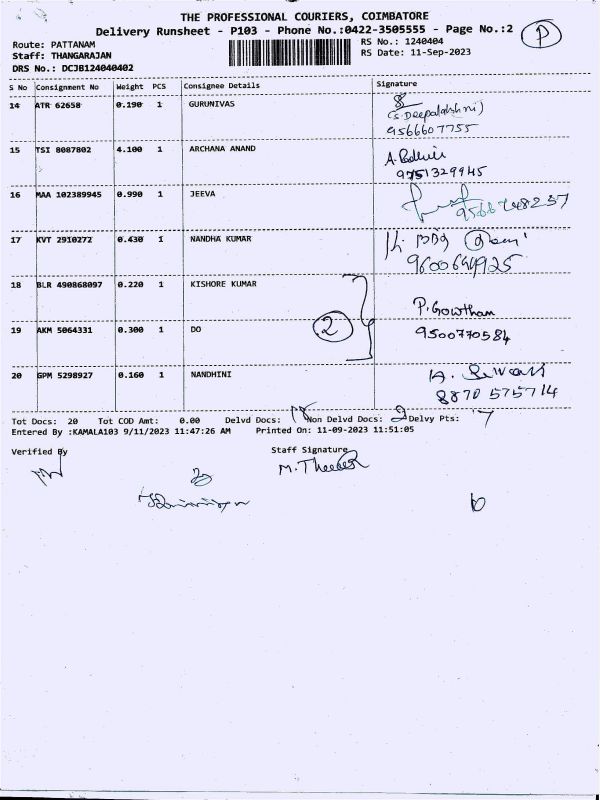 THE PROFESSIONAL COURIERS, COIMBATORE
Delivery Runsheet - P103 - Phone No.:0422-3505555 - Page No.:2
P
Route: PATTANAM
RS No.: 1240404
Staff: THANGARAJAN
RS Date: 11-Sep-2023
DRS No.: DCJB124040402
S No Consignment No Weight PCS Consignee Details Signature
14 ATR 62658 0.190 1 GURUNIVAS
(S.Deepalakshmi)
9566607755
15 TSI 8087802 4.100 1 ARCHANA ANAND
9751329945
16 MAA 102389945 0.990 1 JEEVA
9566748237
17 KVT 2910272 0.430 1 NANDHA KUMAR
9600644925
18 BLR 490868097 0.220 1 KISHORE KUMAR
P.Gowtham
19 AKM 5064331 0.300 1 DO 2
9500770584
20 GPM 5298927 0.160 1 NANDHINI
8870 575714
Tot Docs: 20 Tot COD Amt: 0.00 Delvd Docs: 18 Non Delvd Docs: 2 Delvy Pts: 7
Entered By :KAMALA103 9/11/2023 11:47:26 AM Printed On: 11-09-2023 11:51:05
Verified By Staff Signature